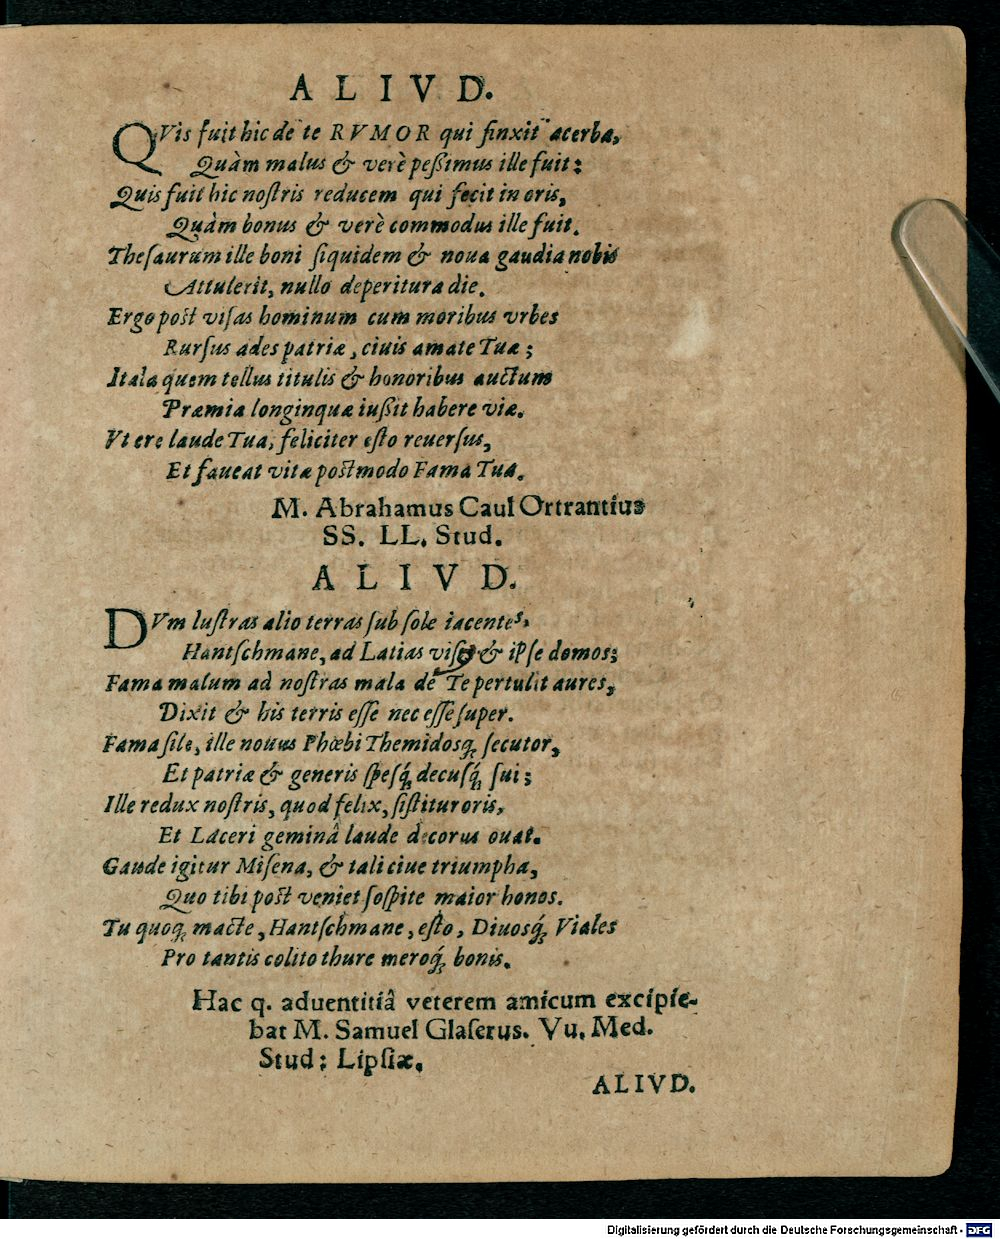 ALIVD.
QVis fuit hic de te RVMOR qui finxit acerba,
Quàm malus & verè peßimus ille fuit:
Quis fuit hic nostris reducem qui fecit in oris,
Quàm bonus & verè commodus ille fuit.
Thesaurum ille boni siquidem & noua gaudia nobis
Attulerit, nullo deperitura die.
Ergo post visas hominum cum moribus vrbes
Rursus ades patriæ, ciuis amate Tuæ;
Itala quem tellus titulis & honoribus auctum
Præmia longinquæ iußit habere viæ.
Vtere laude Tua, feliciter esto reuersus,
Et faueat vitæ postmodo Fama Tua.
M. Abrahamus Caul Ortrantius
SS. LL. Stud.
ALIVD.
DVm lustras alio terras sub sole iacentes,
Hantschmane, ad Latias visq; & ipse domos;
Fama malum ad nostras mala de Te pertulit aures,
Dixit & his terris esse nec esse super.
Fama sile, ille nouus Phœbi Themidosq; secutor,
Et patriæ & generis spesq́; decusq́; sui;
Ille redux nostris, quod felix, sistitur oris,
Et Laceri geminâ laude decorus ouat.
Gaude igitur Misena, & tali ciue triumpha,
Quo tibi post veniet sospite maior honos.
Tu quoq; macte, Hantschmane, esto, Diuosq́; Viales
Pro tantis colito thure meroq́; bonis.
Hac q. aduentitiâ veterem amicum excipie-
bat M. Samuel Glaserus. Vu. Med.
Stud: Lipsiæ.
ALIVD.
Digitalisierung gefördert durch die Deutsche Forschungsgemeinschaft - DFG